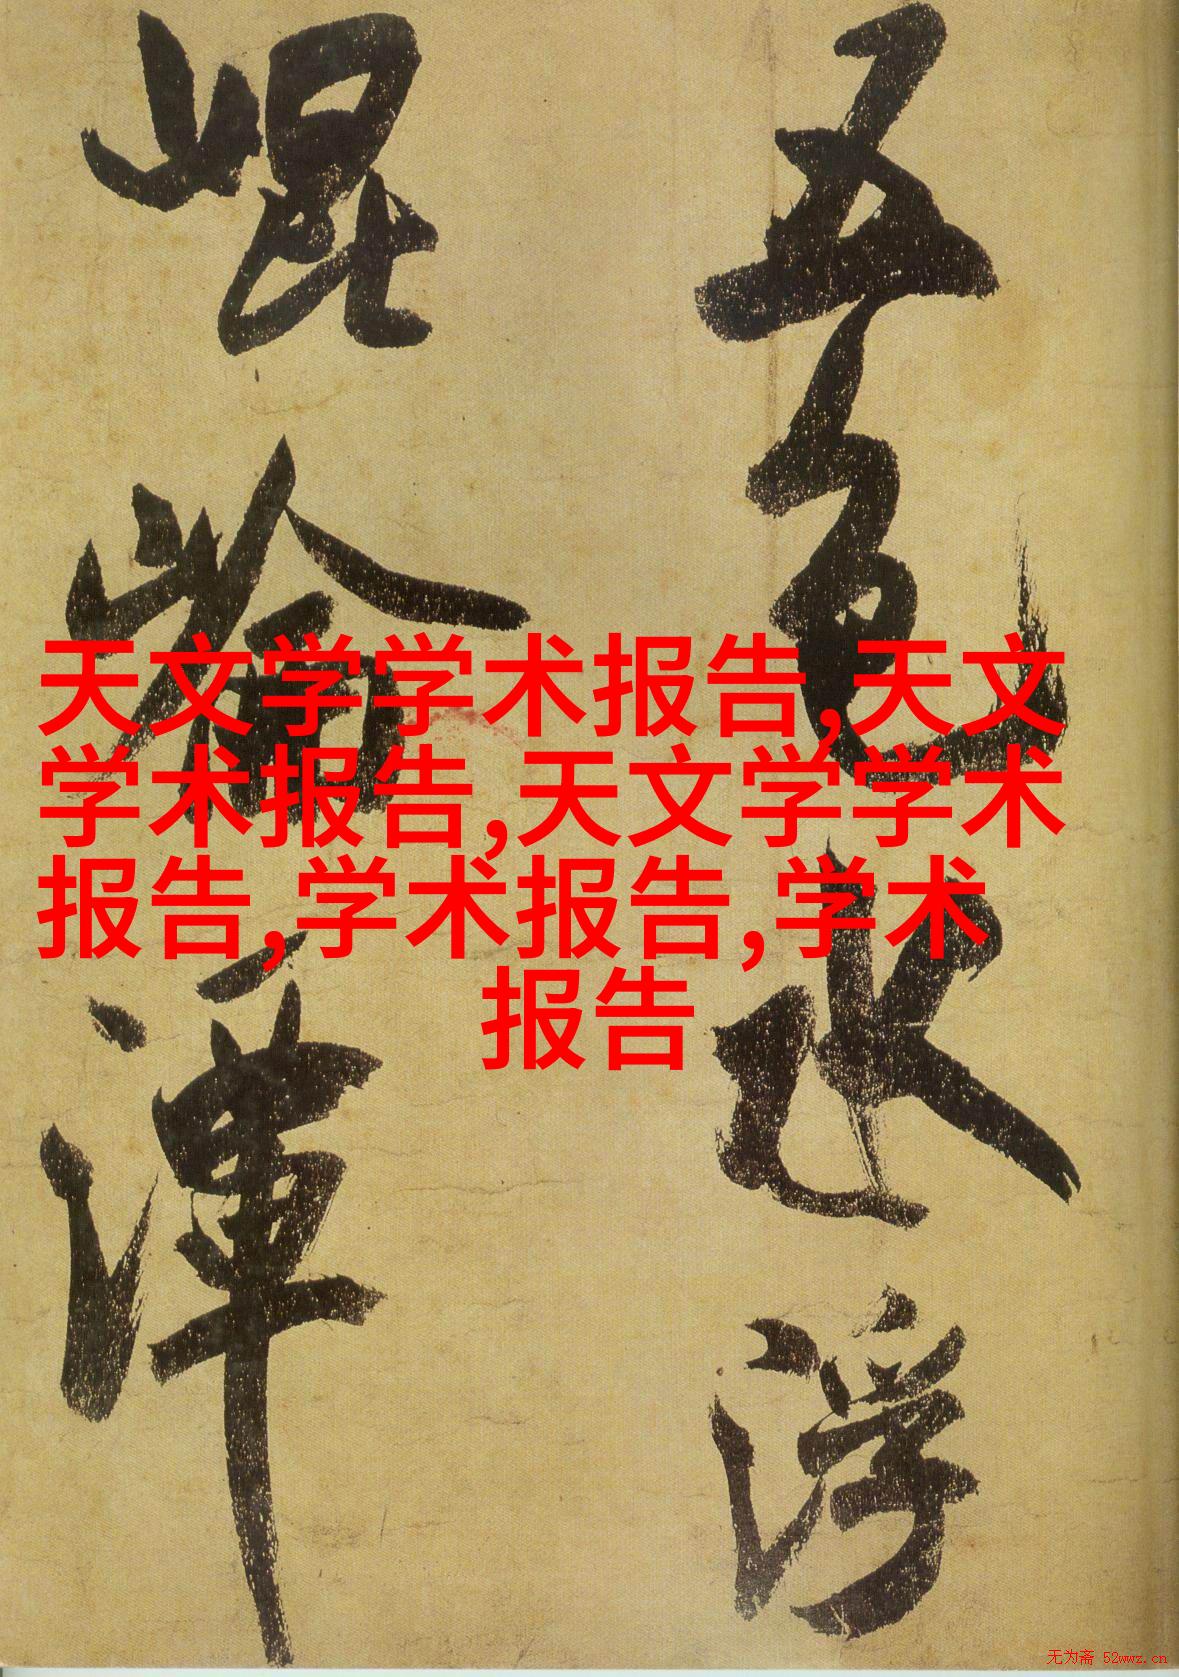 五色水浮
崐崘渾
天文学学术报告,天文
学术报告,天文学学术
报告,学术报告,学术
报告
无为斋 52wwz.cn